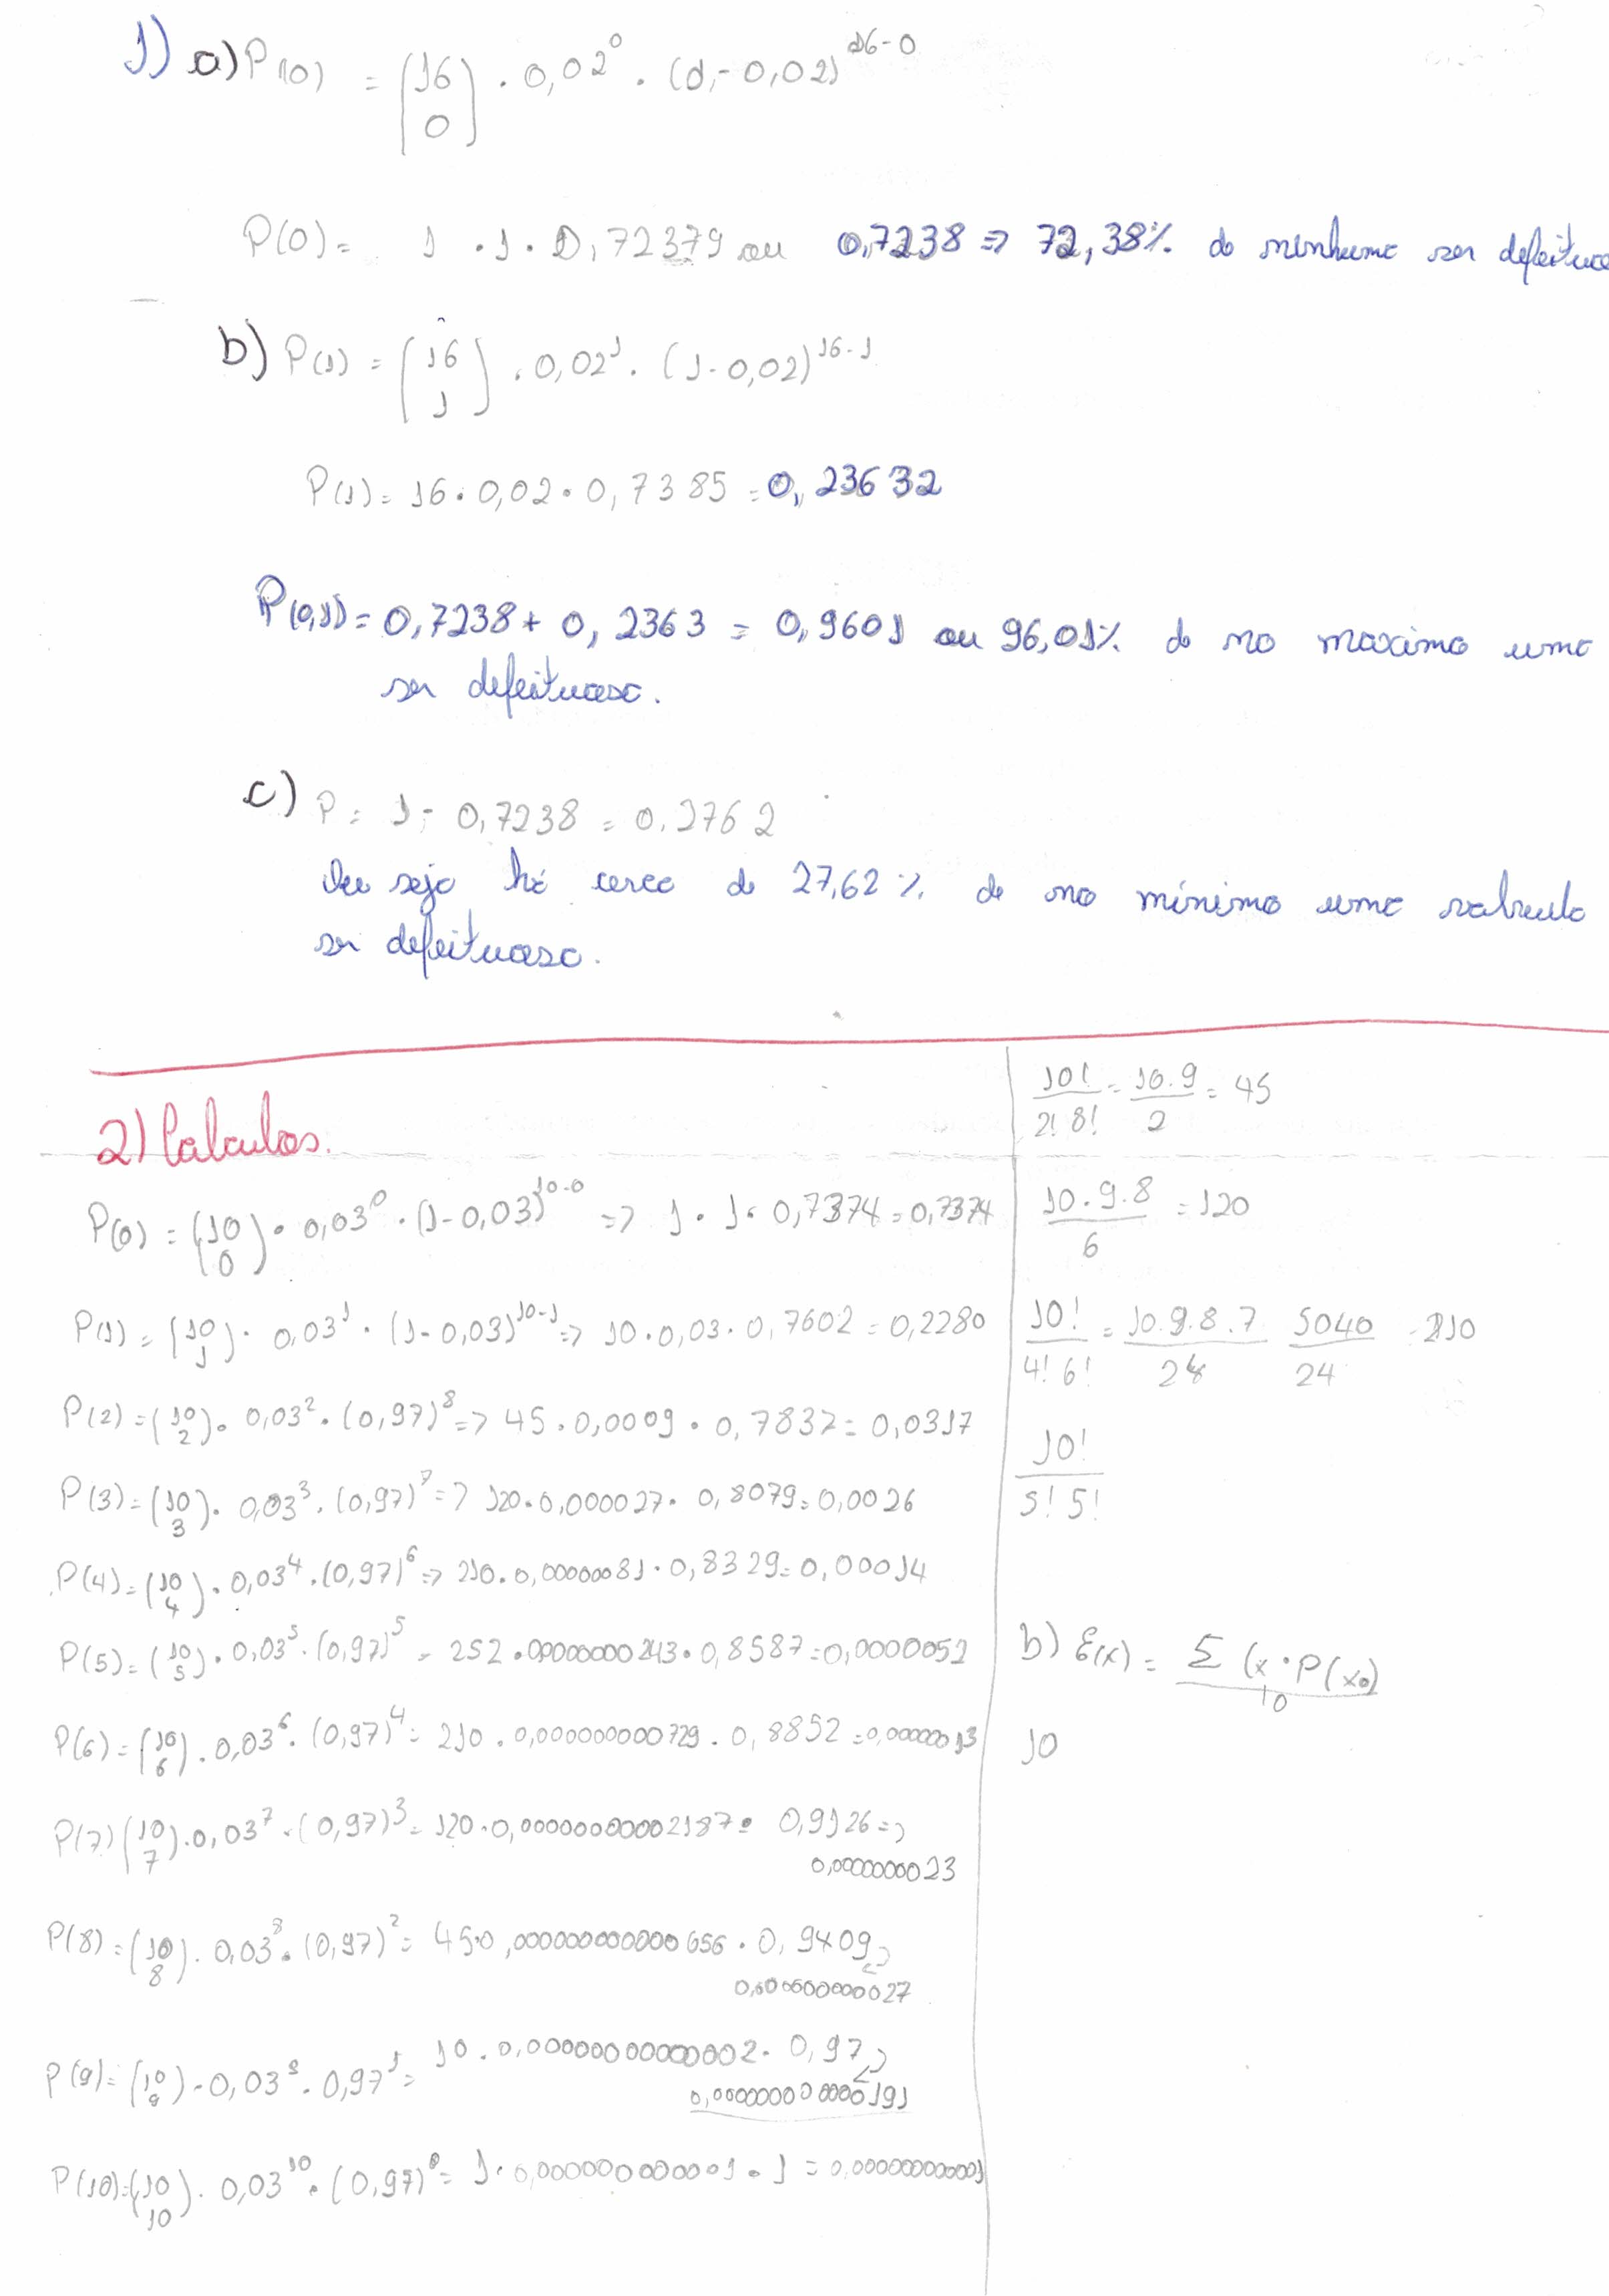 1) a) P(0) = (16 0) · 0,02⁰ · (1,- 0,02)¹⁶⁻⁰
P(0) = 1 · 1 · 0,72379 ou 0,7238 => 72,38% de nenhuma ser defeituos
b) P(1) = (16 1) · 0,02¹ · (1-0,02)¹⁶⁻¹
P(1) = 16 · 0,02 · 0,7385 = 0,23632
P(0,1) = 0,7238 + 0,2363 = 0,9601 ou 96,01% de no maximo uma
ser defeituosa.
c) P = 1 - 0,7238 = 0.2762
Ou seja há cerca de 27,62% de no mínimo uma valvula
ser defeituosa.
2) Calculos.
P(0) = (10 0) · 0,03⁰ · (1-0,03)¹⁰⁻⁰ => 1 · 1 · 0,7374 = 0,7374
P(1) = (10 1) · 0,03¹ · (1-0,03)¹⁰⁻¹ => 10 · 0,03 · 0,7602 = 0,2280
P(2) = (10 2) · 0,03² · (0,97)⁸ => 45 · 0,0009 · 0,7837 = 0,0317
P(3) = (10 3) · 0,03³ · (0,97)⁷ => 120 · 0,000027 · 0,8079 = 0,0026
P(4) = (10 4) · 0,03⁴ · (0,97)⁶ => 210 · 0,00000081 · 0,8329 = 0,00014
P(5) = (10 5) · 0,03⁵ · (0,97)⁵ = 252 · 0,0000000243 · 0,8587 = 0,0000052
P(6) = (10 6) · 0,03⁶ · (0,97)⁴ = 210 · 0,000000000729 · 0,8852 = 0,00000013
P(7) (10 7) · 0,03⁷ · (0,97)³ = 120 · 0,00000000002187 · 0,9126 =>
0,0000000023
P(8) = (10 8) · 0,03⁸ · (0,97)² = 45 · 0,000000000000656 · 0,9409
0,000000000027
P(9) = (10 9) · 0,03⁹ · 0,97¹ = 10 · 0,00000000000002 · 0,97
0,000000000000191
P(10) = (10 10) · 0,03¹⁰ · (0,97)⁰ = 1 · 0,000000000001 · 1 = 0,000000000001
10!/2! 8! = 10.9/2 = 45
10.9.8/6 = 120
10!/4! 6! = 10.9.8.7/24 5040/24 = 210
10!/5! 5!
b) E(x) = Σ (x · P(x))/10
10